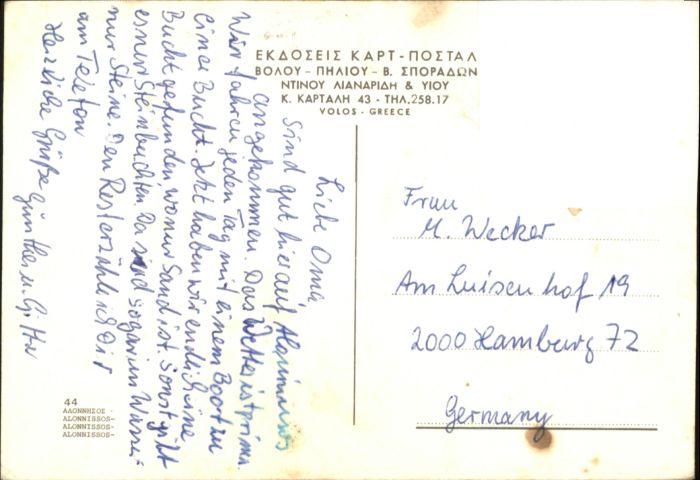 ΕΚΔΟΣΕΙΣ ΚΑΡΤ-ΠΟΣΤΑΛ
ΒΟΛΟΥ - ΠΗΛΙΟΥ - Β. ΣΠΟΡΑΔΩΝ
ΝΤΙΝΟΥ ΛΙΑΝΑΡΙΔΗ & ΥΙΟΥ
Κ. ΚΑΡΤΑΛΗ 43 - ΤΗΛ. 258.17
VOLOS - GREECE
Liebe Oma,
Sind gut hier auf Alonnissos
angekommen. Das Wetter ist prima.
Wir fahren jeden Tag mit einem Boot zu
einer Bucht. Jetzt haben wir endlich eine
Bucht gefunden, wo nur Sand ist. Sonst gibt
es nur Steinbuchten. Da sind sogar im Wasser
nur Steine. Den Rest erzähle ich Dir
am Telefon
Herzliche Grüße Günther u. Gitta
Frau
M. Wecker
Am Luisenhof 19
2000 Hamburg 72
Germany
44
ΑΛΟΝΝΗΣΟΣ -
ALONNISSOS-
ALONNISSOS-
ALONNISSOS-